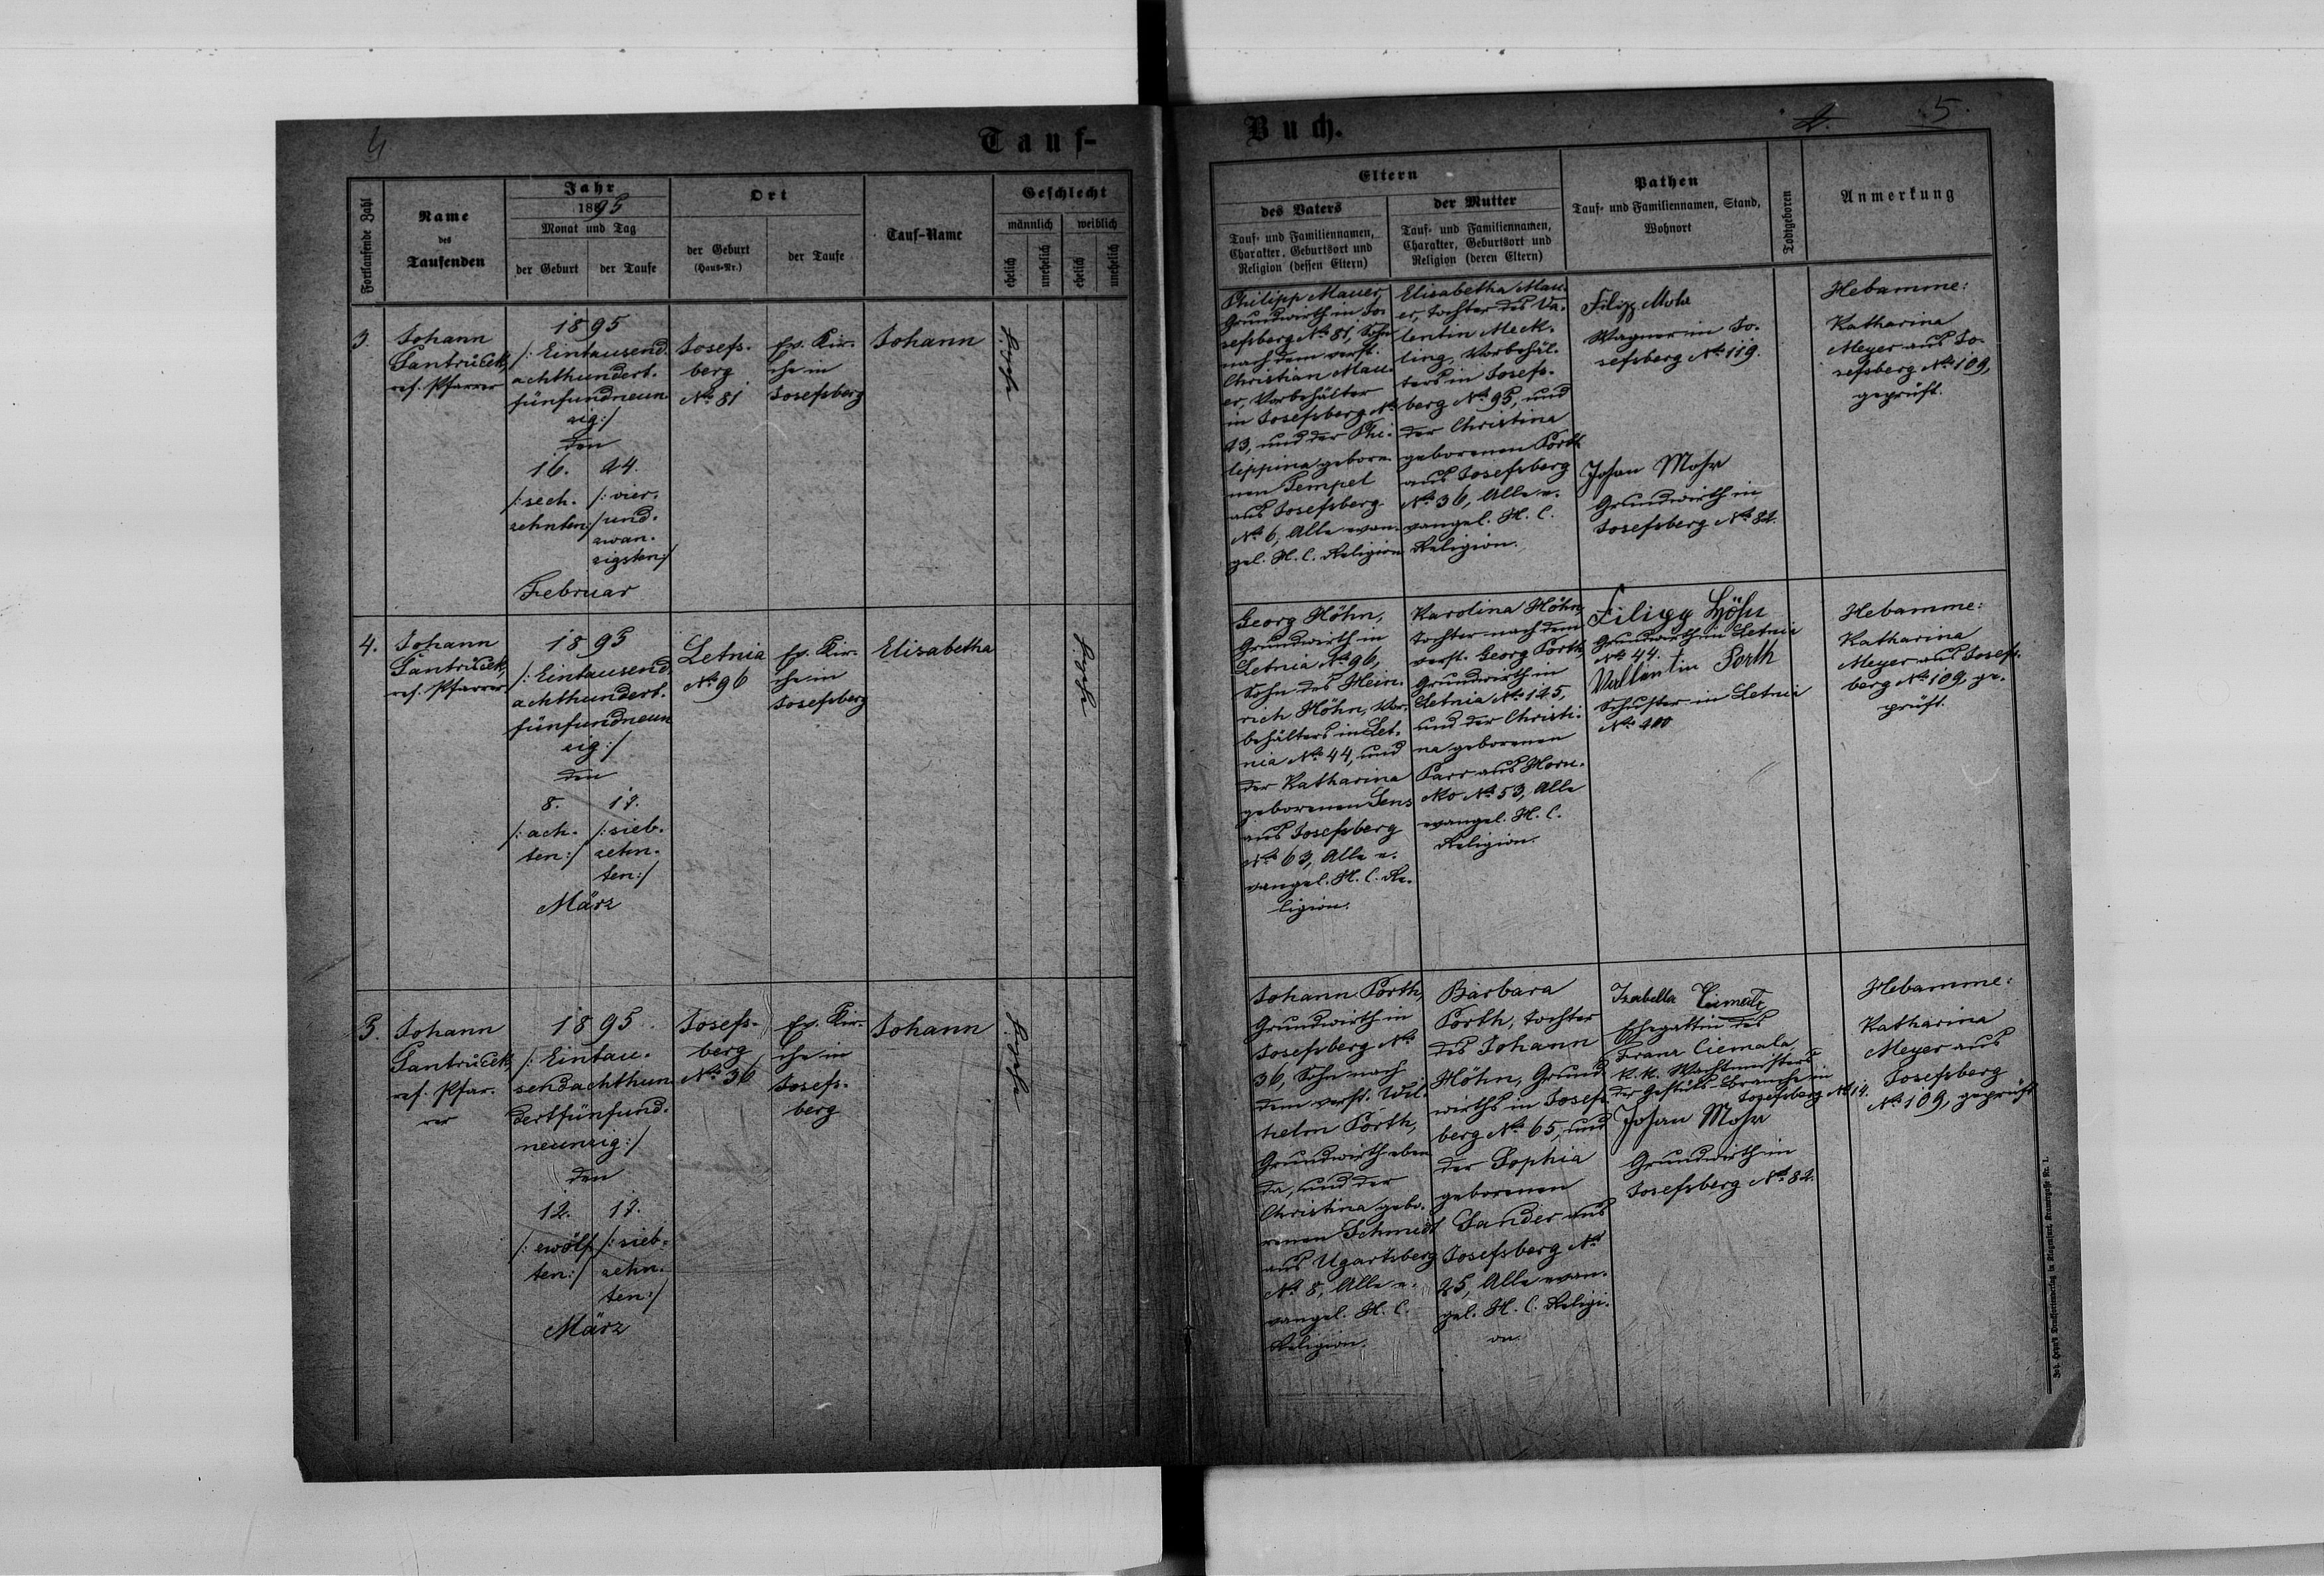 4
Tauf-
Fortlaufende Zahl
Name
des
Taufenden
Jahr
1895
Monat und Tag
der Geburt
der Taufe
Ort
der Geburt
(Haus-Nr.)
der Taufe
Tauf-Name
Geschlecht
männlich
weiblich
ehelich
unehelich
ehelich
unehelich
3.
Johann
Šantrůček,
ref. Pfarrer
1895
/: Eintausend.
achthundert.
fünfundneun
zig :/
den
16.
/: sech.
zehnten :/
24.
/: vier.
und.
zwan.
zigsten :/
Februar
Josefs.
berg
No 81
Ev. Kir.
che in
Josefsberg
Johann
4.
Johann
Šantrůček,
ref. Pfarrer
1895
/: Eintausend.
achthundert.
fünfundneun
zig :/
den
8.
/: ach.
ten :/
17.
/: sieb.
zehn.
ten :/
März
Letnia
No 96
Ev. Kir.
che in
Josefsberg
Elisabetha
5.
Johann
Šantrůček,
ref. Pfar.
rer
1895.
/: Eintau.
sendachthun
dertfünfund.
neunzig :/
den
12.
/: zwölf
ten :/
17.
/: sieb.
zehn.
ten :/
März
Josefs.
berg
No 36
Ev. Kir.
che in
Josefs.
berg
Johann
Buch.
2.
5.
Eltern
des Vaters
Tauf- und Familiennamen,
Charakter, Geburtsort und
Religion (dessen Eltern)
der Mutter
Tauf- und Familiennamen,
Charakter, Geburtsort und
Religion (deren Eltern)
Pathen
Tauf- und Familiennamen, Stand,
Wohnort
Todtgeboren
Anmerkung
Philipp Mauer,
Grundwirth in Jo.
sefsberg No 81, Sohn
nach dem verst.
Christian Mau.
er, Vorbehälter
in Josefsberg No
43, und der Phi.
lippina gebore.
nen Tempel
aus Josefsberg
No 6, Alle evan.
gel. H. C. Religion
Elisabetha Mau.
er, Tochter des Va.
lentin Meck.
ling, Vorbehäl.
ters in Josefs.
berg No 95, und
der Christina
geborenen Porth
aus Josefsberg
No 36, Alle e.
vangel. H. C.
Religion.
Filipp Mohr
Wagner in Jo.
sefsberg No 119.
Johan Mohr
Grundwirth in
Josefsberg No 82.
Hebamme:
Katharina
Meyer aus Jo.
sefsberg No 109,
geprüft.
Georg Höhn,
Grundwirth in
Letnia No 96,
Sohn des Hein.
rich Höhn, Vor.
behälters in Let.
nia No 44, und
der Katharina
geborenen Sens
aus Josefsberg
No 63, Alle e.
vangel. H. C. Re.
ligion.
Karolina Höhn,
Tochter nach dem
verst. Georg Porth,
Grundwirth in
Letnia No 125,
und der Christi.
na geborenen
Parr aus Horu.
cko No 53, Alle
evangel. H. C.
Religion.
Filipp Höhn
Grundwirth in Letnia
No 44.
Vallentin Porth
Schuster in Letnia
Hebamme:
Katharina
Meyer aus Josefs.
berg No 109, ge.
prüft.
Johann Porth,
Grundwirth in
Josefsberg No
36, Sohn nach
dem verst. Wil.
helm Porth,
Grundwirth eben
da, und der
Christina gebo.
renen Schmidt
aus Ugartsberg
No 8, Alle e.
vangel. H. C.
Religion.
Barbara
Porth, Tochter
des Johann
Höhn, Grund
wirths in Josefs.
berg No 65, und
der Sophia
geborenen
Sander aus
Josefsberg No
25, Alle evan.
gel. H. C. Religi.
on.
Isabella Ciemala
Ehegattin des
Franz Ciemala,
k. k. Wachtmeisters
der Gestüts-Branche in
Josefsberg No 14.
Johan Mohr
Grundwirth in
Josefsberg No 82.
Hebamme:
Katharina
Meyer aus
Josefsberg
No 109, geprüft